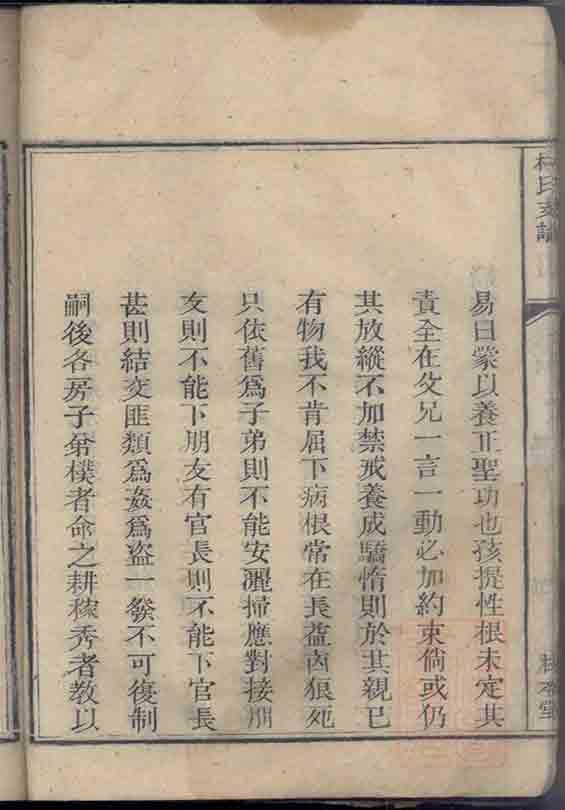 氏支譜
易曰蒙以養正聖功也孩提性根未定其
責全在父兄一言一動必加約束倘或仍
其放縱不加禁戒養成驕惰則於其親已
有物我不肯屈下病根常在長益凶狠死
只依舊爲子弟則不能安灑掃應對接朋
友則不能下朋友有官長則不能下官長
甚則結交匪類爲姦爲盜一發不可復制
嗣後各房子弟樸者命之耕稼秀者教以
本堂